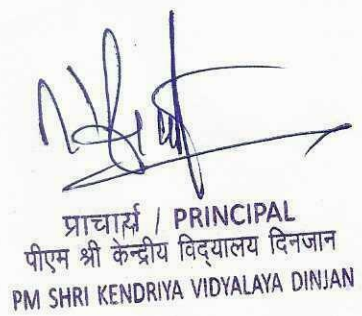 प्राचार्य / PRINCIPAL
पीएम श्री केन्द्रीय विद्यालय दिनजान
PM SHRI KENDRIYA VIDYALAYA DINJAN